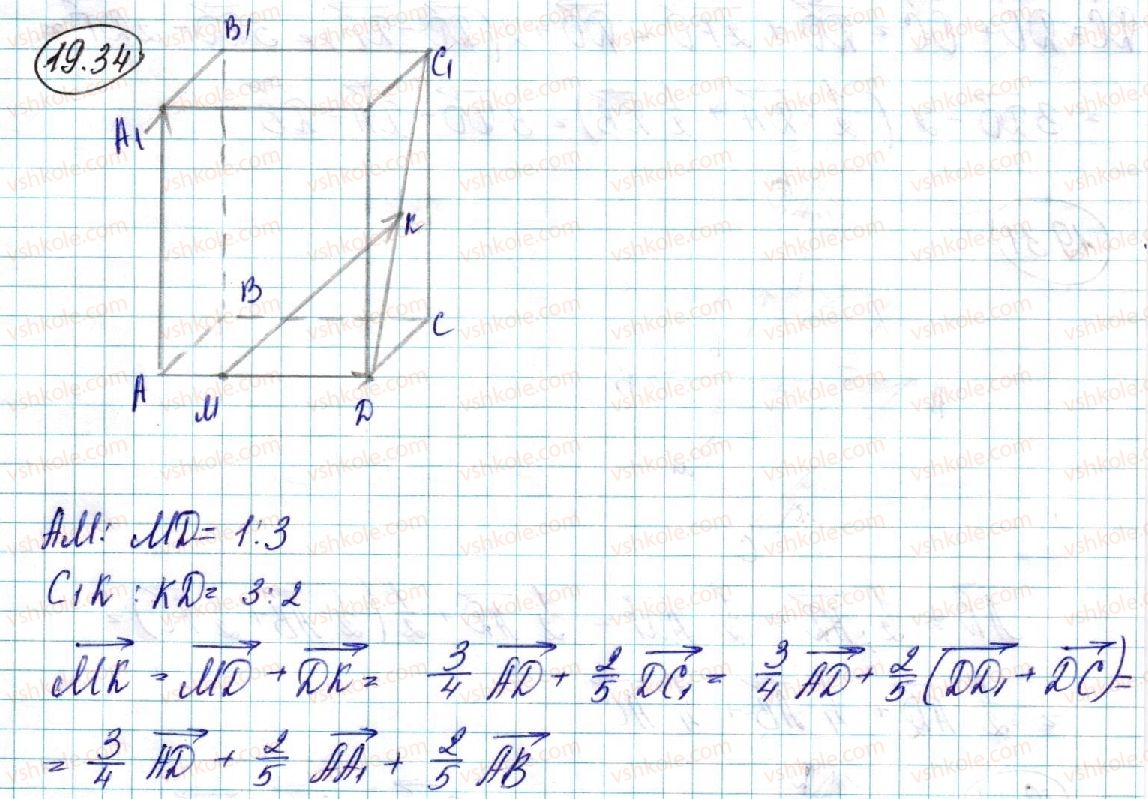 19.34
B1
C1
A1
K
B
C
A
M
D
AM: MD= 1:3
C1K : KD= 3:2
MK = MD + DK = 3/4 AD + 2/5 DC1 = 3/4 AD + 2/5 (DD1 + DC) =
= 3/4 AD + 2/5 AA1 + 2/5 AB
vshkole.com